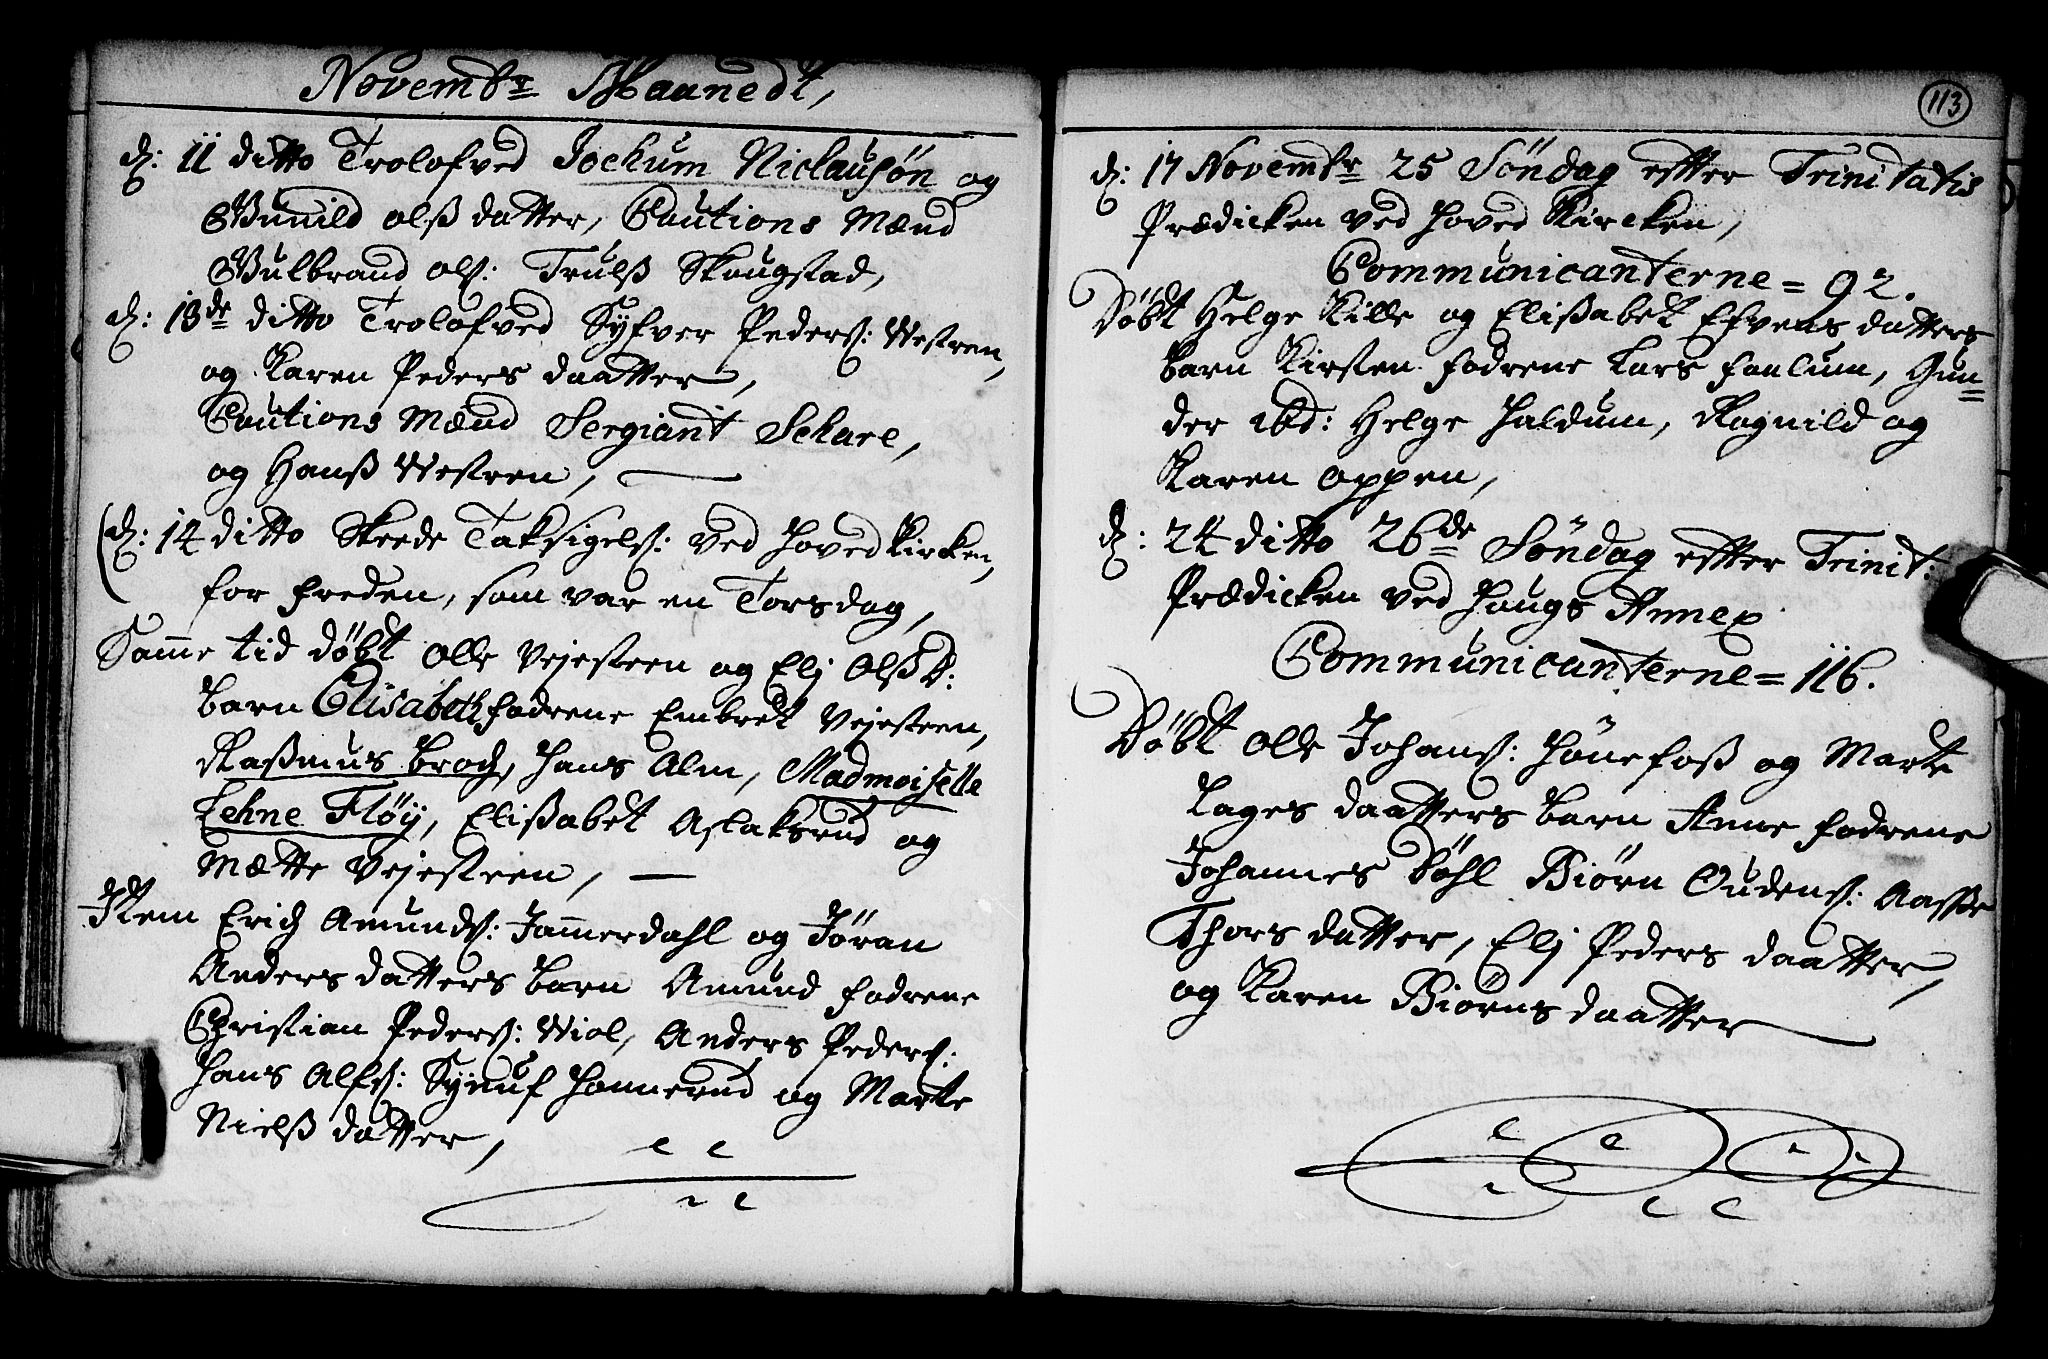 Novembr Maanedt,
d: 11 ditto Trolofved Jochum Niclausøn og
Gunild olß datter, Cautions Mænd
Gulbrand ols: Trulß Skougstad,
d: 13de ditto Trolofved Syfver Peders: Westren,
og Karen Peders daatter,
Cautions Mænd Sergiant Schare,
og Hanß Westren,
(d: 14 ditto Skeede Taksigels: ved Hoved Kircken,
for freden, som var en Torsdag,
Samme tid døbt olle Vejesteen og Elj Olß D:
barn Elisabeth fadrene Embret Vejesteen,
Raßmus Broch, Hans Alm, Madmoiselle
Lehne Fløy, Elißabet Aslaksrud og
Mætte Vejesteen,
Item Erich Amunds: Jammerdahl og Jøran
Anders datters barn Amund fadrene
Christian Peders: Wiol, Anders Peders:
Hans Alfs: Synuf Honnerud og Marte
Nielß datter,
113
d: 17 Novembr 25 Söndag effter Trinitatis
Prædicken ved Hoved Kircken,
Communicanterne = 92.
Døbt Helge Kille og Elißabet Efvens datters
barn Kirsten fadrene Lars Faalum, Gun=
der ibd: Helge Haldum, Ragnild og
Karen oppen,
d: 24 ditto 26de Söndag effter Trinit:
Prædicken ved Hougs Annex
Communicanterne = 116.
Døbt olle Johans: Hönefoß og Marte
Lages daatters barn Anne fadrene
Johannes Döhl Biörn Oudens: Aasse
Thors datter, Elj Peders daatter,
og Karen Biörns daatter